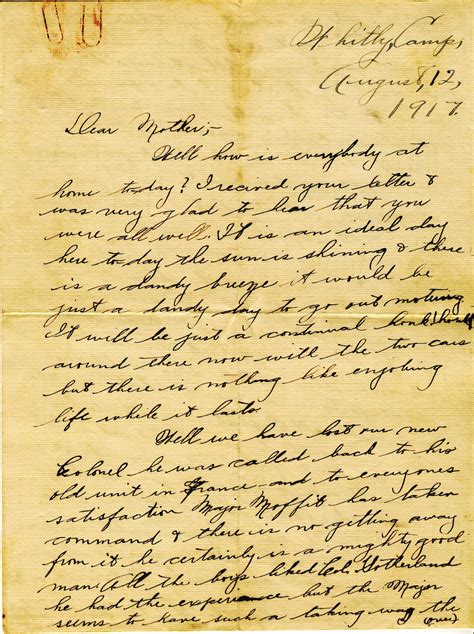 Whitly, Camp,
August, 12,
1917.
Dear Mother;-
Well how is everybody at
home to-day? I recived your letter &
was very glad to hear that you
were all well. It is an ideal day
here to-day the sun is shining & there
is a dandy breeze it would be
just a dandy day to go out motoring
It will be just a continual honk! honk!
around there now with the two cars
but there is nothing like enjoying
life while it lasts.
Well we have lost our new
Colonel he was called back to his
old unit in France and to everyones
satisfaction Major Moffit has taken
command & there is no getting away
from it he certainly is a mighty good
man. All the boys liked Col.
he had the experience but the Major
seems to have such a taking way the
(over)